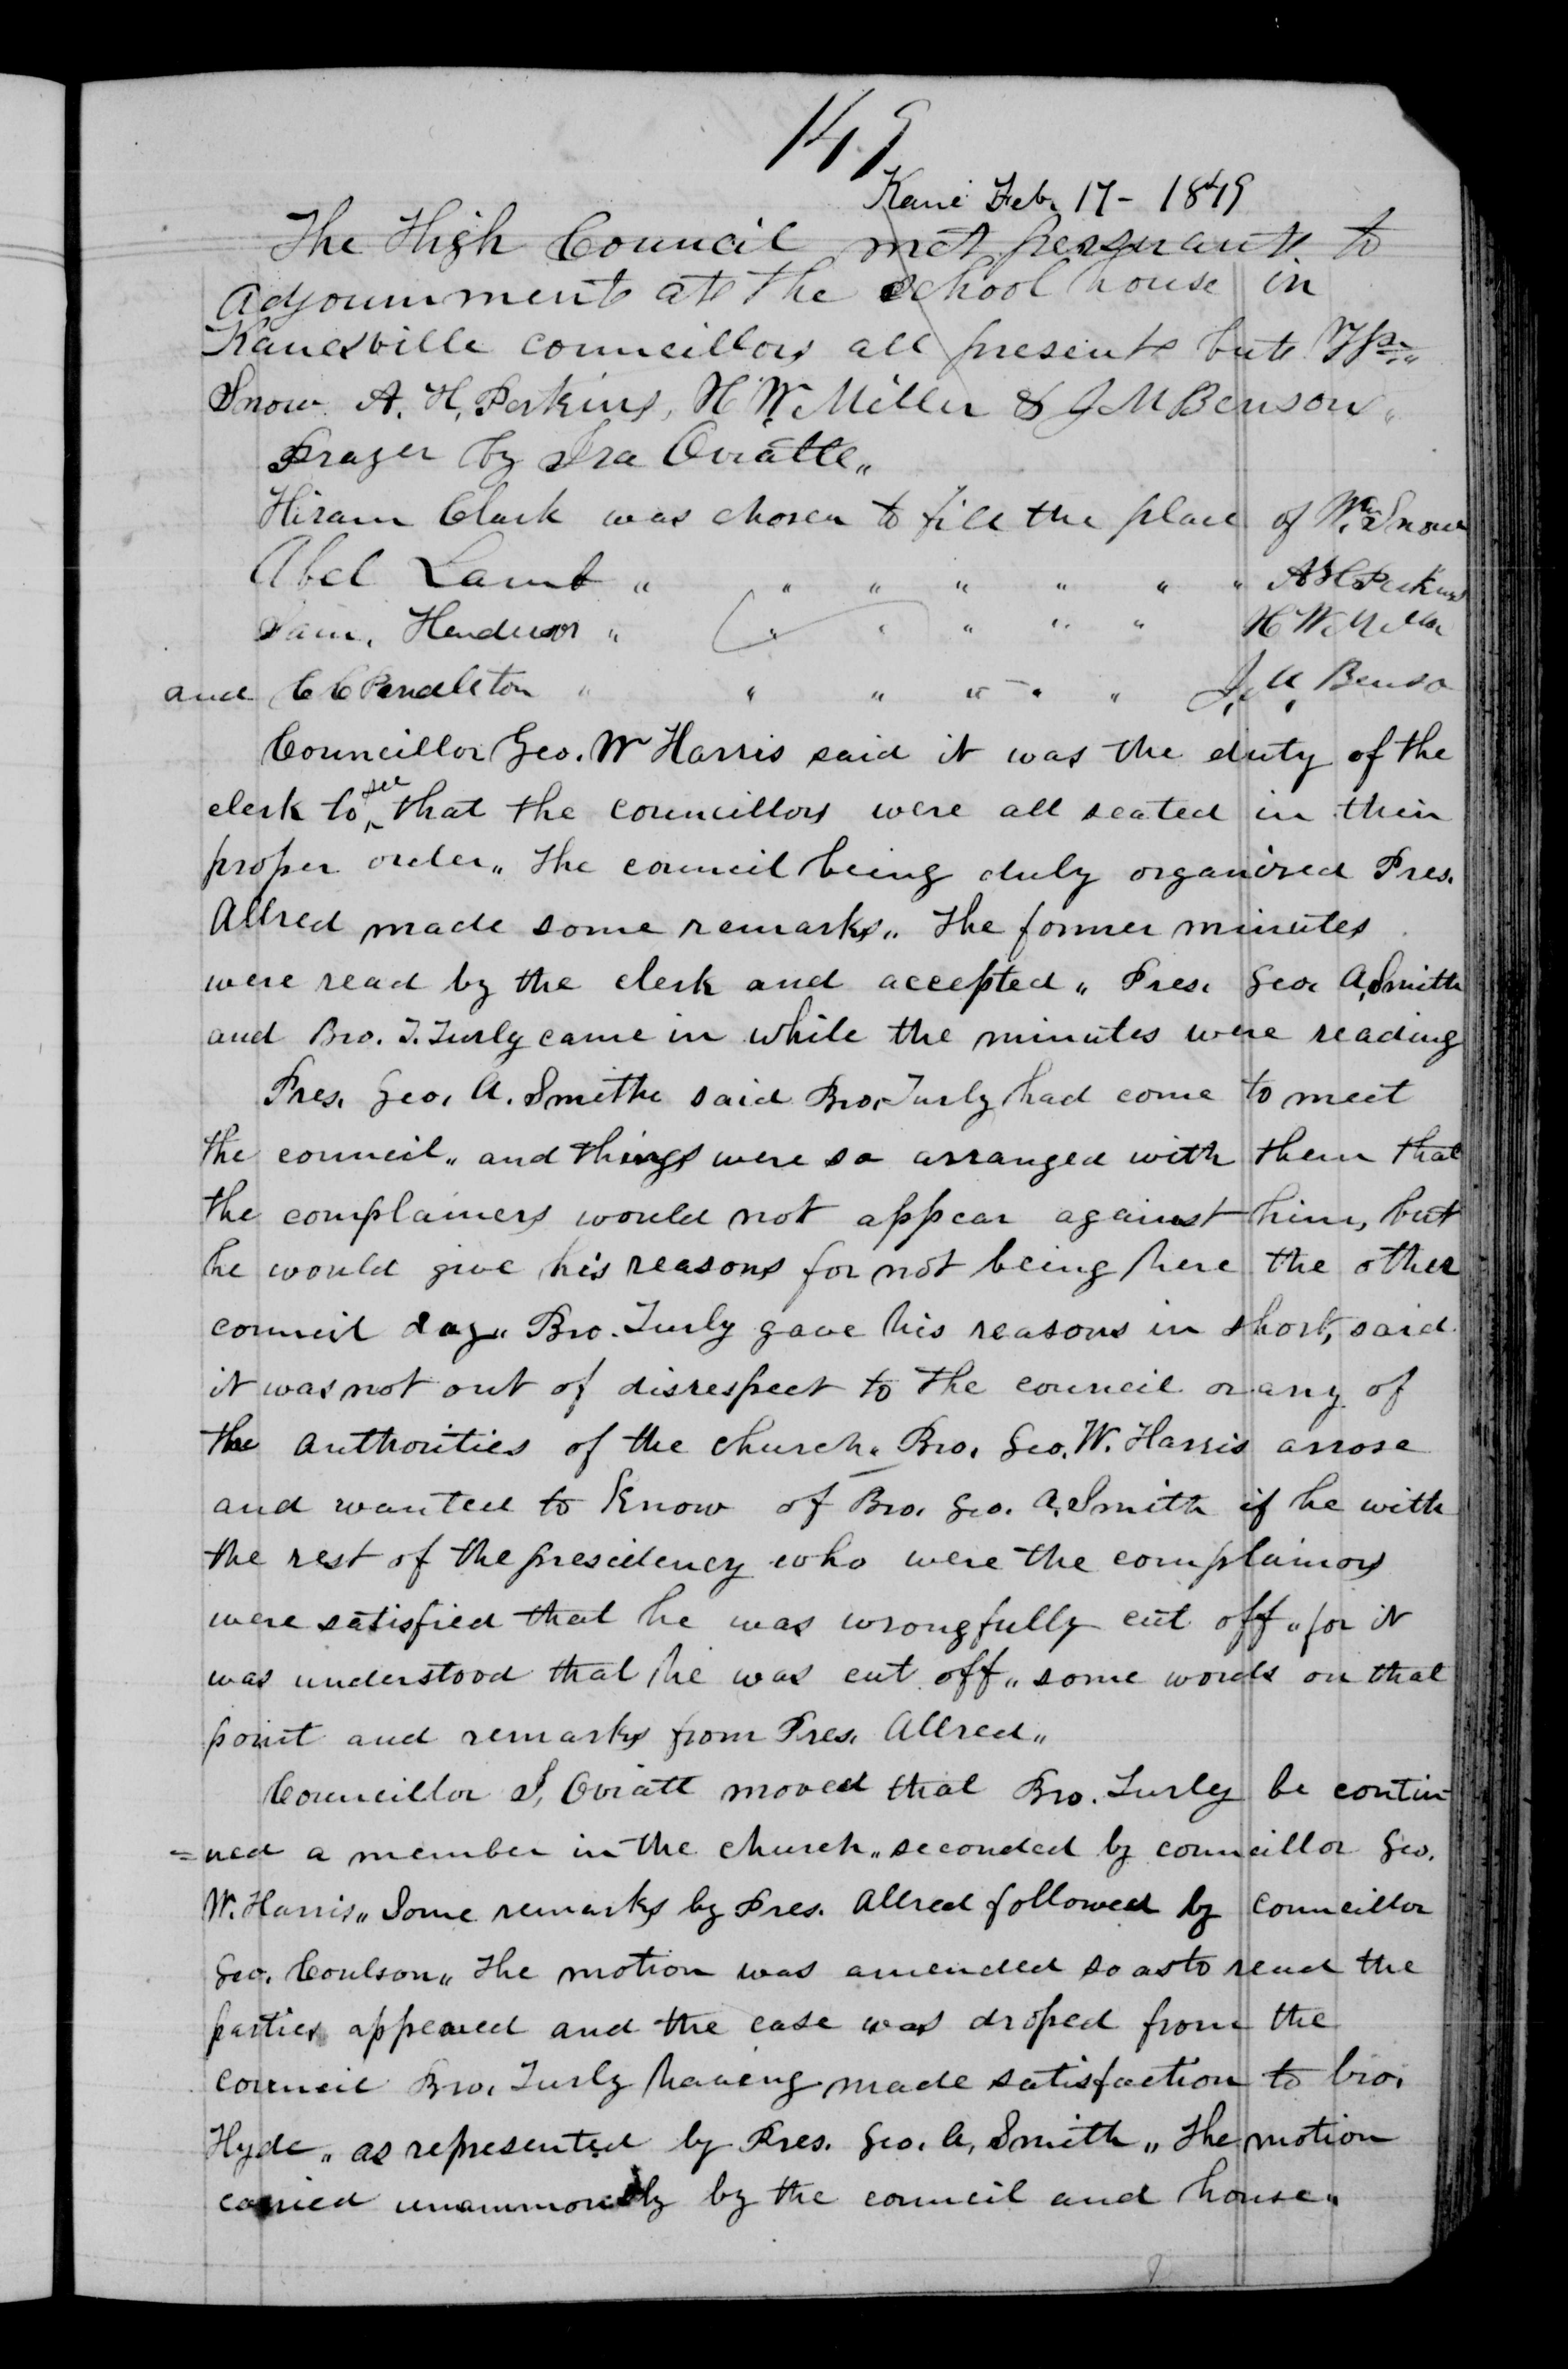 149
Kane Feb. 17 - 1849
The High Council met persuant to
adjournment at the school house in
Kanesville councillors all present but Wm
Snow. A. H. Perkins, H. W. Miller & J M Benson„
Prayer by Ira Oviatt„
Hiram Clark was chosen to fill the place of Wm Snow
Abel Lamb " " " " " " " A H Perkins
Sam. Henderson " " " " " " H W Miller
and C C Pendleton " " " " " " J. M. Benson
Councillor Geo. W Harris said it was the duty of the
clerk to see that the councillors were all seated in their
proper order„ The council being duly organized Pres.
Allred made some remarks„ The former minutes
were read by the clerk and accepted„ Pres. Geo. A. Smith
and Bro. T. Turly came in while the minutes were reading
Pres. Geo. A. Smith said Bro. Turly had come to meet
the council„ and things were so arranged with them that
the complainers would not appear against him, but
he would give his reasons for not being here the other
council day„ Bro. Turly gave his reasons in short, said
it was not out of disrespect to the council or any of
the authorities of the church. Bro. Geo. W. Harris arrose
and wanted to know of Bro. Geo. A. Smith if he with
the rest of the presidency who were the complainors
were satisfied that he was wrongfully cut off„ for it
was understood that he was cut off„ some words on that
point and remarks from Pres. Allred„
Councillor I. Oviatt moved that Bro. Turly be contin-
=ued a member in the church„ seconded by councillor Geo.
W. Harris„ Some remarks by Pres. Allred followed by Councillor
Geo. Coulson„ The motion was amended so as to read the
parties appeared and the case was droped from the
council Bro. Turly having made satisfaction to bro.
Hyde„ as represented by Pres. Geo. A. Smith„ The motion
carried unanimously by the council and house„